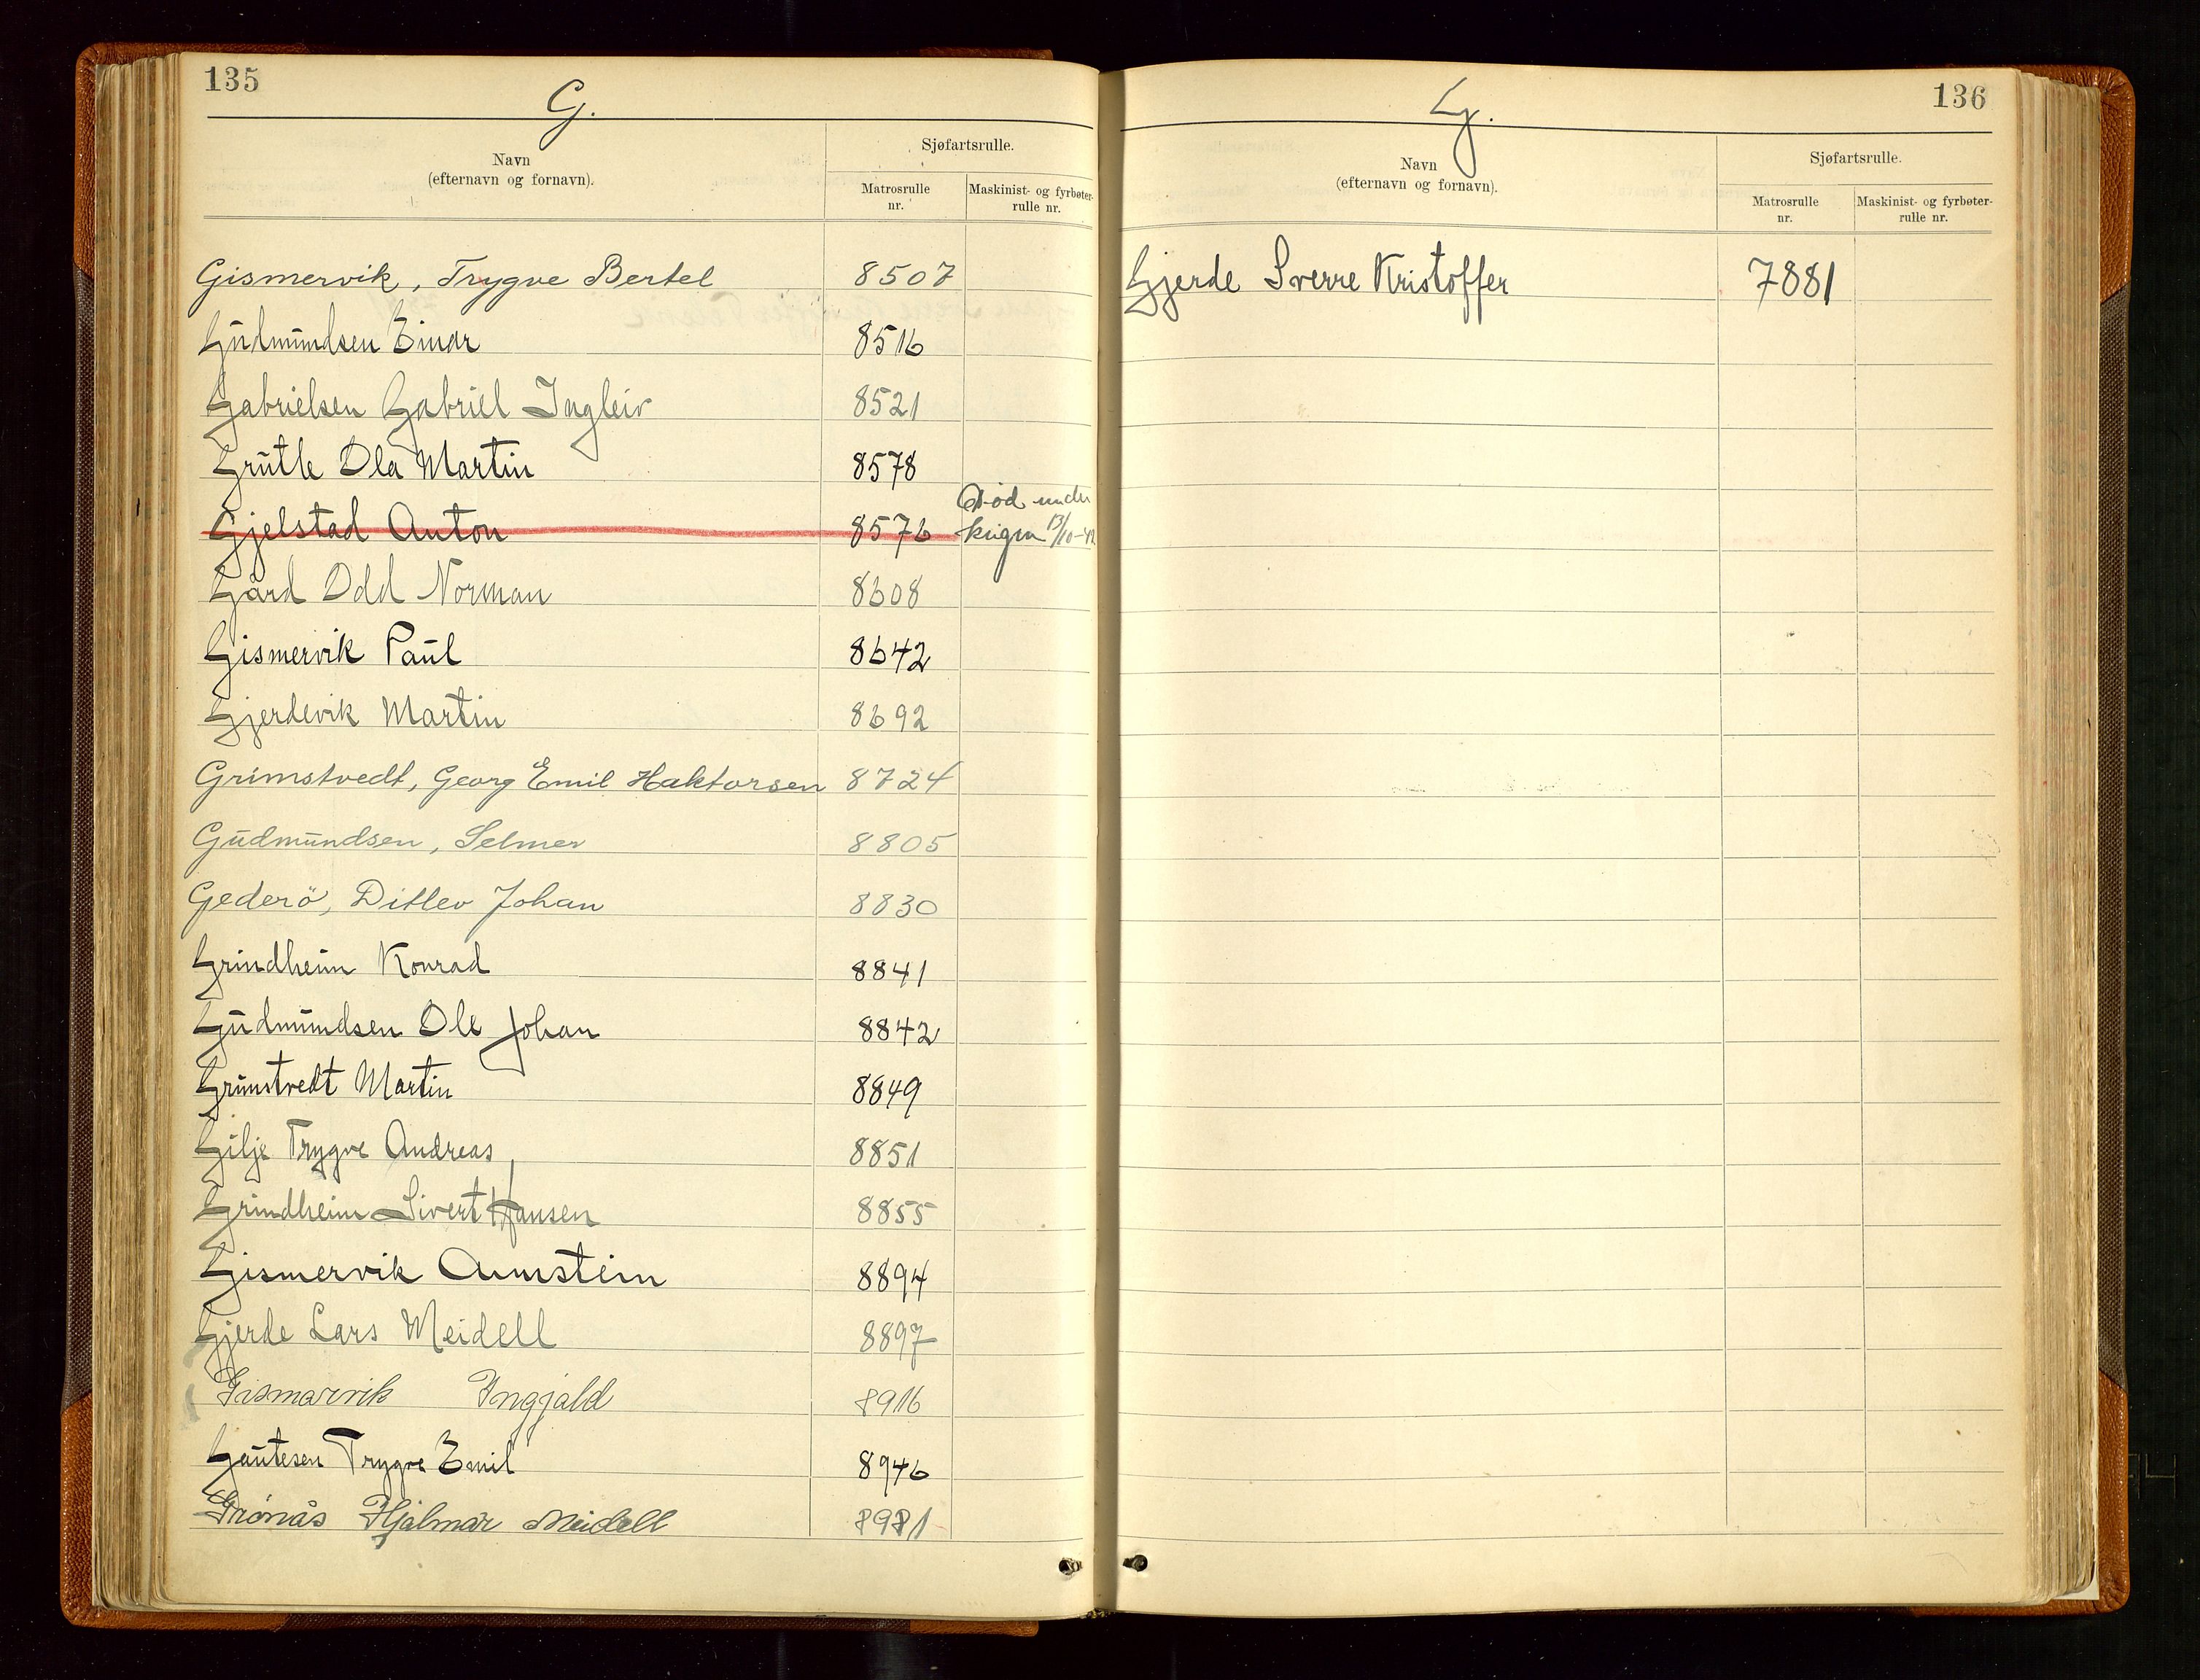 135
G.
Navn
(efternavn og fornavn).
Sjøfartsrulle.
Matrosrulle
nr.
Maskinist- og fyrbøter-
rulle nr.
Gismervik, Trygve Bertel 8507
Gudmundsen Einar 8516
Gabrielsen Gabriel Ingleiv 8521
Grutle Ola Martin 8578
Gjelstad Anton 8576 Död under
krigen 13/10-42
Gård Odd Norman 8608
Gismervik Paul 8642
Gjerdevik Martin 8692
Grimstvedt, Georg Emil Haktorsen 8724
Gudmundsen, Selmer 8805
Gederö, Ditlev Johan 8830
Grindheim Konrad 8841
Gudmundsen Ole Johan 8842
Grimstvedt Martin 8849
Gilje Trygve Andreas 8851
Grindheim Sivert Hansen 8855
Gismervik Arnstein 8894
Gjerde Lars Meidell 8897
Gismarvik Ingjald 8916
Gautesen Trygve Emil 8946
Grönås Hjalmar Meidell 8981
136
G.
Navn
(efternavn og fornavn).
Sjøfartsrulle.
Matrosrulle
nr.
Maskinist- og fyrbøter-
rulle nr.
Gjerde Sverre Kristoffer 7881